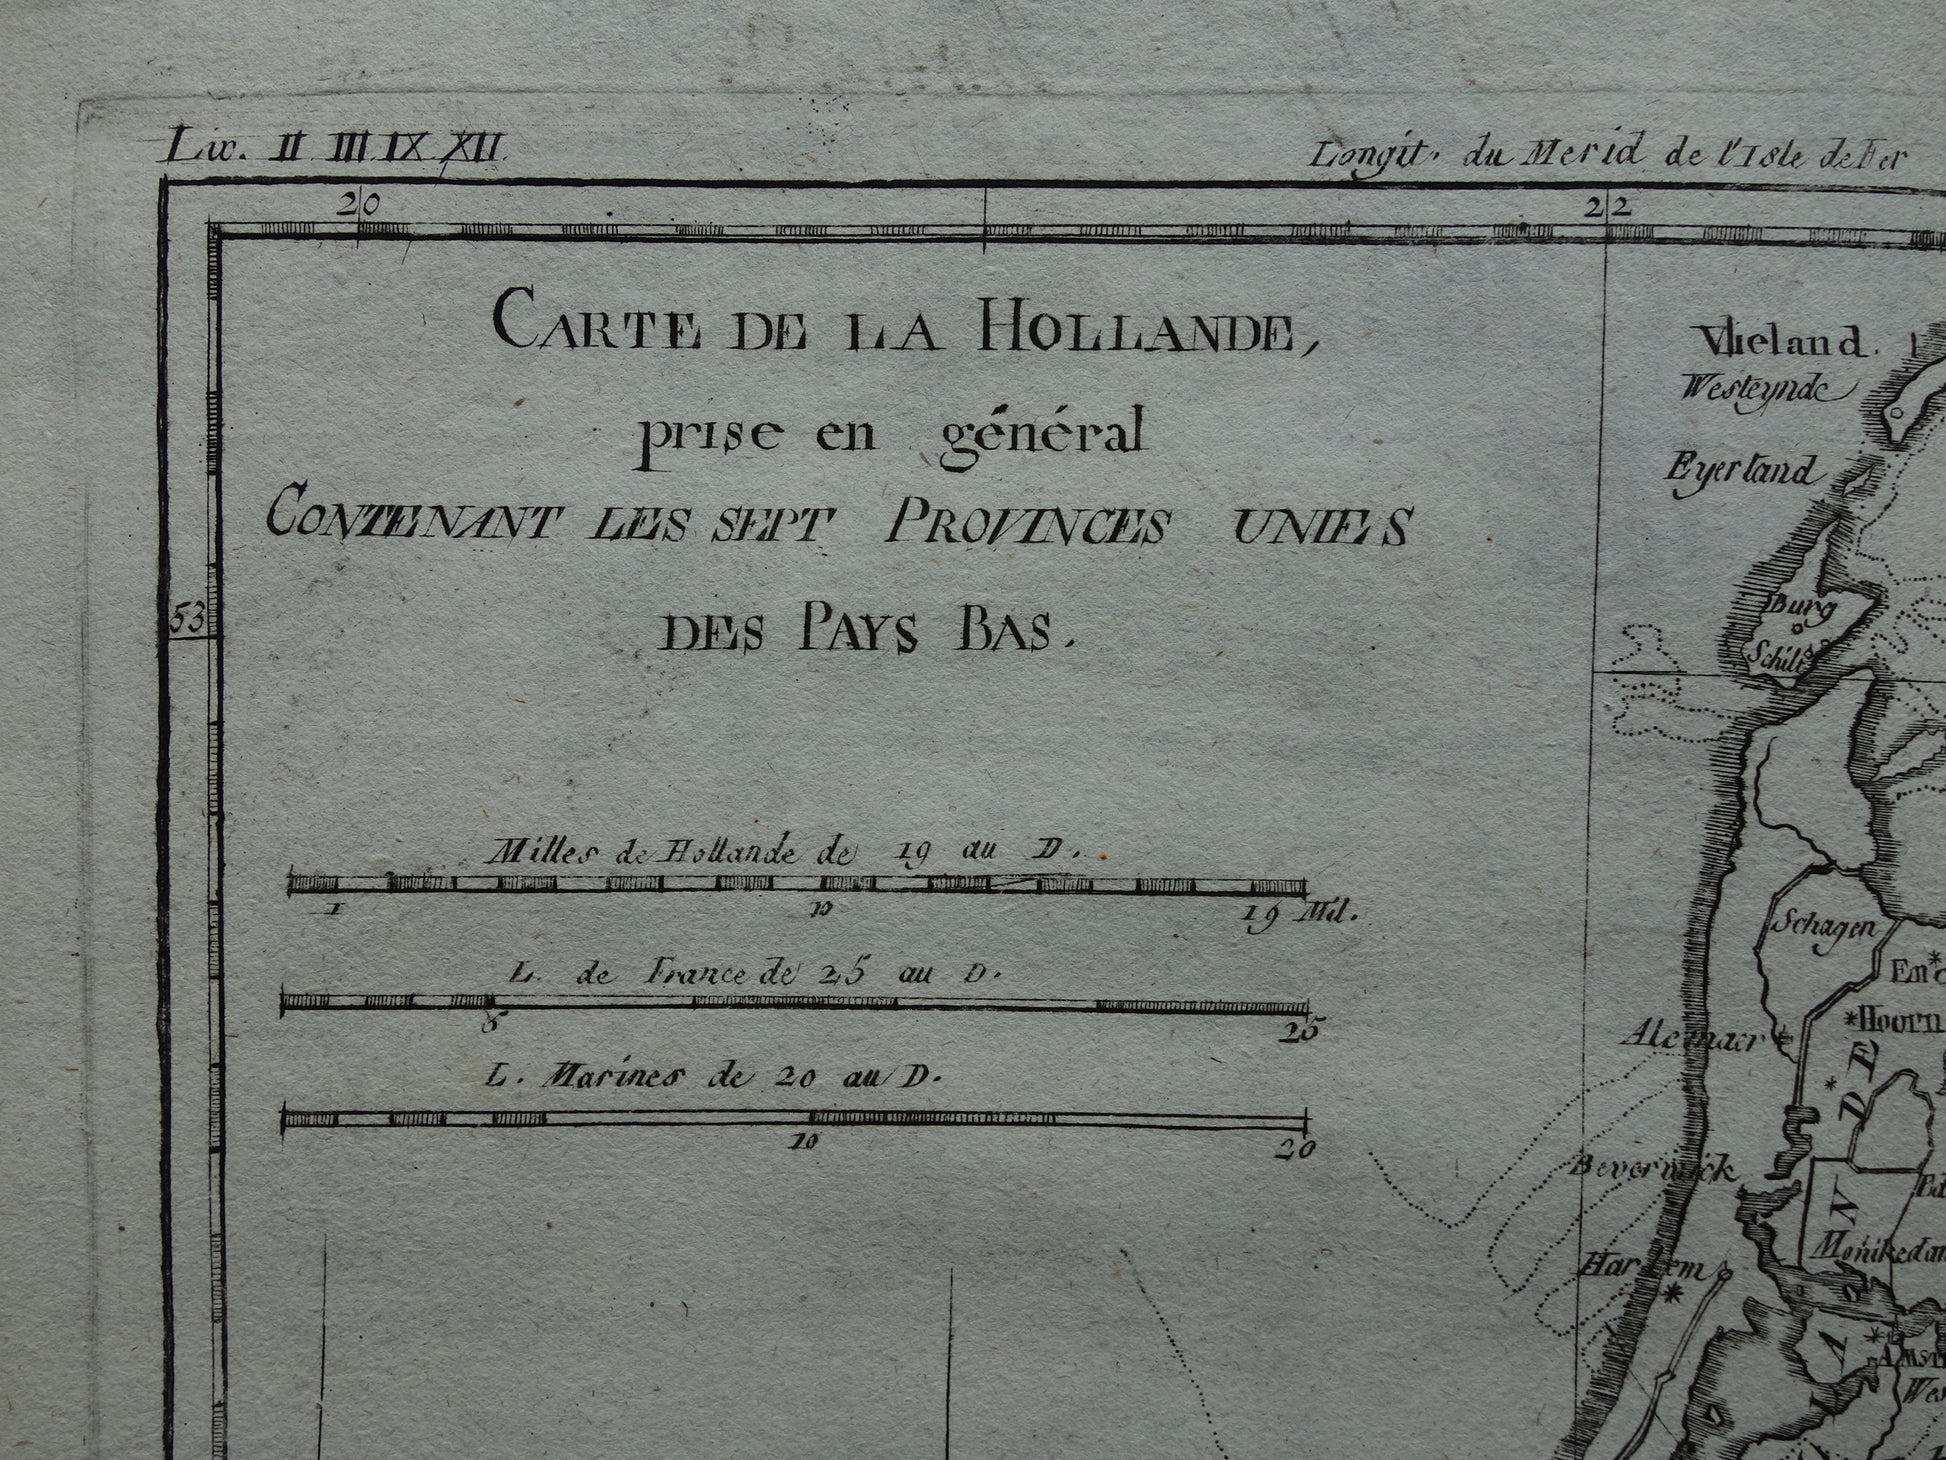 Liv. II III IX XII.
Longit. du Merid de l'Isle de Fer
20
22
CARTE DE LA HOLLANDE,
prise en général
CONTENANT LES SEPT PROVINCES UNIES
DES PAYS BAS.
53
Vlieland.
Westeynde
Eyerland
Burg
Schilt
Milles de Hollande de 19 au D.
1 10 19 Mil.
L. de France de 25 au D.
5 25
L. Marines de 20 au D.
10 20
Schagen
Hoorn
Alcmaer
DE
Beverwick
N
Harlem
A